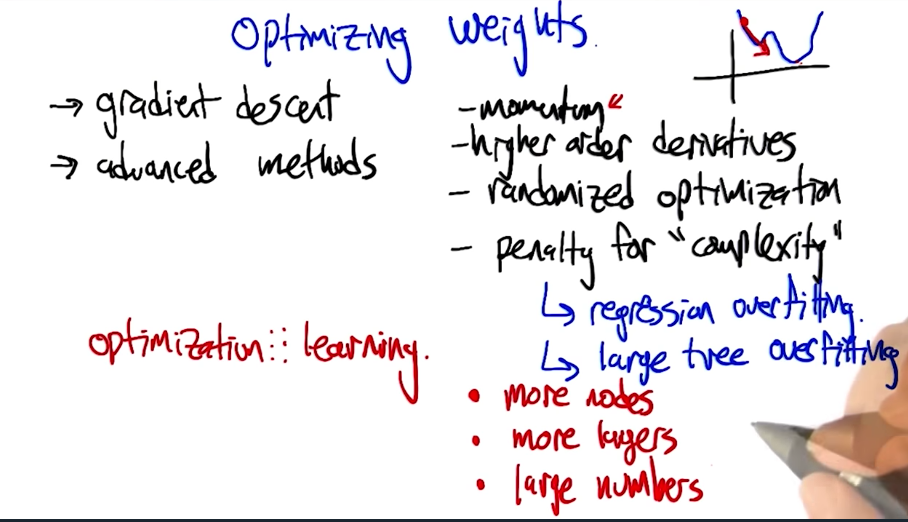 Optimizing weights.
→ gradient descent
→ advanced methods
- momentum
- higher order derivatives
- randomized optimization
- penalty for "complexity"
↳ regression overfitting.
↳ large tree overfitting
optimization:: learning.
• more nodes
• more layers
• large numbers